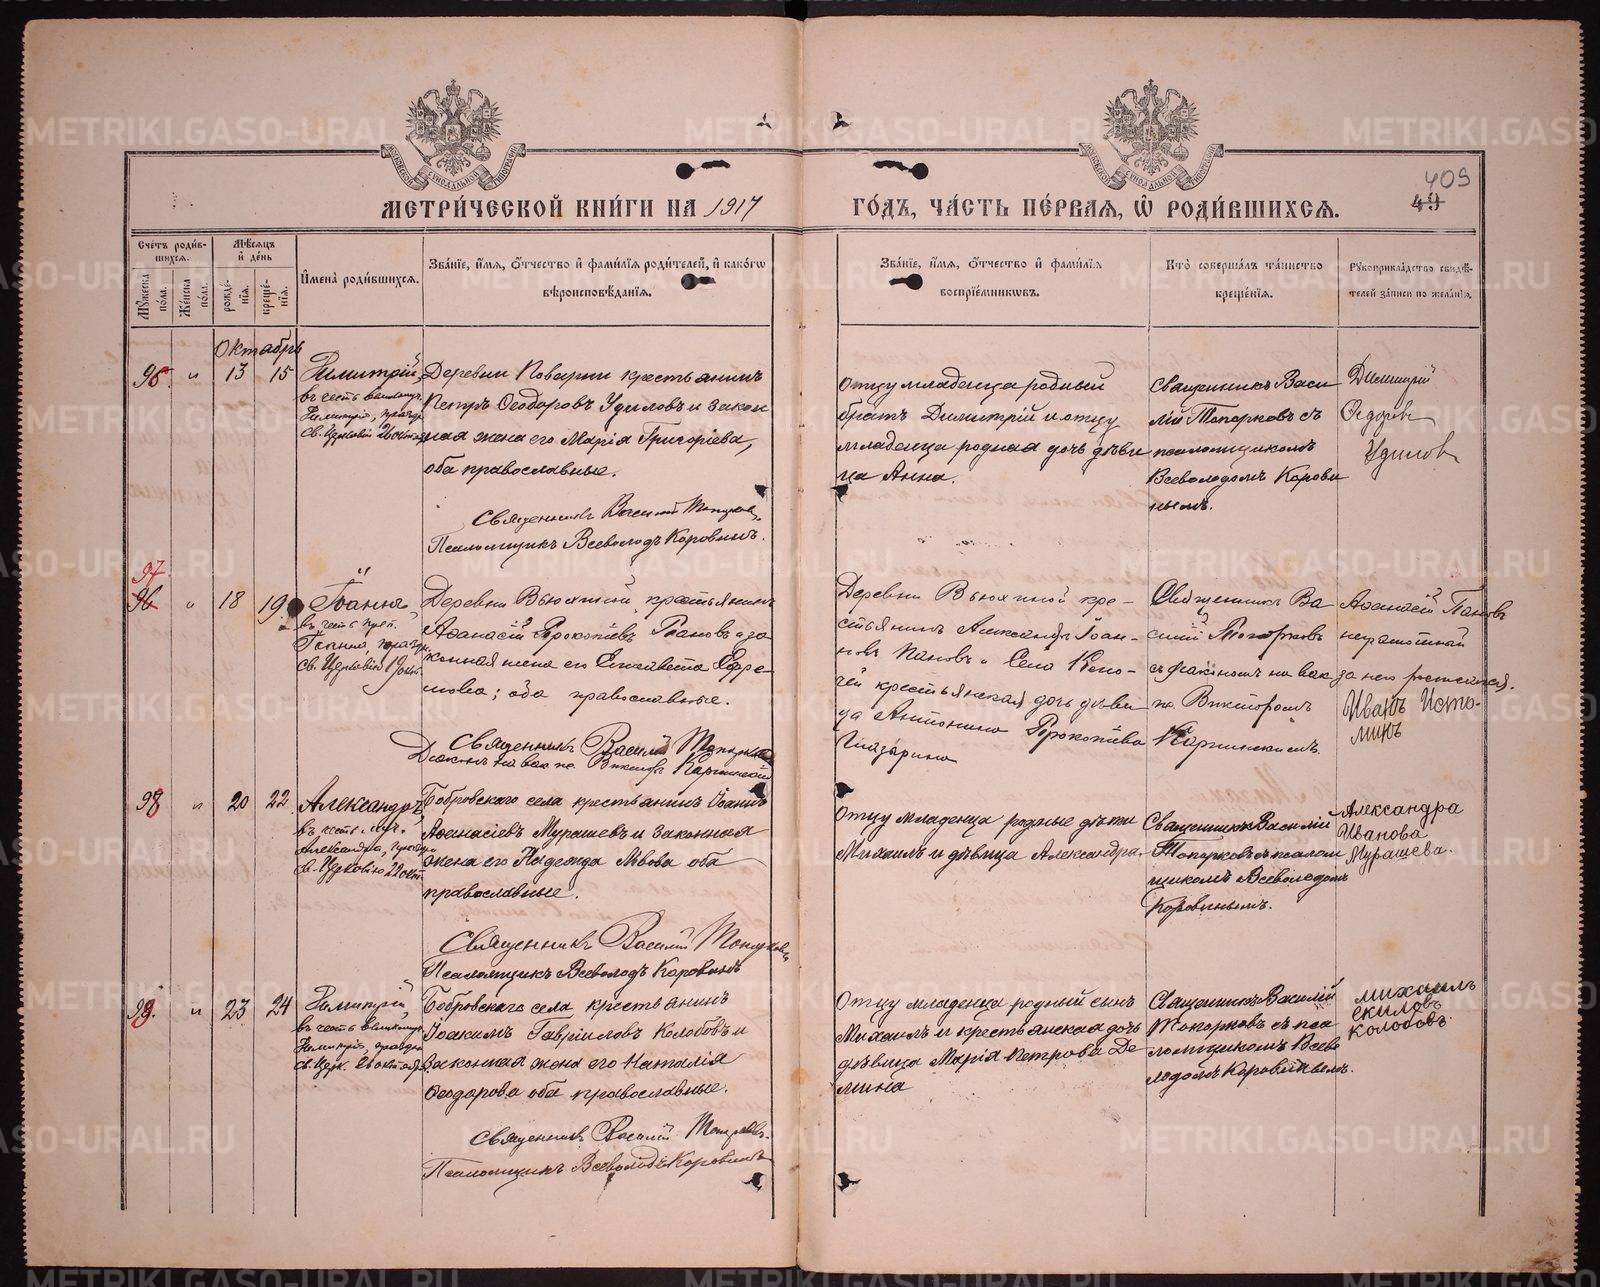 МЕТРИ́ЧЕСКОЙ КНИ́ГИ НА 1917
ГО́ДЪ, ЧА́СТЬ ПЕ́РВАЯ, Ѿ РОДИ́ВШИХСЯ.
409
49
Сче́тъ роди́в-
шихся.
Му́жеска по́ла.
Же́нска по́ла.
Мѣ́сяцъ
и҆ де́нь
рожде́нїѧ.
креще́нїѧ.
И҆мена̀ роди́вшихся.
Зва́нїе, и҆́мя, ѻ҆́тчество и҆ фами́лїѧ роди́телей, и҆ како́гѡ
вѣроисповѣ́данїѧ.
Зва́нїе, и҆́мя, ѻ҆́тчество и҆ фами́лїѧ
воспрїе́мниковъ.
Кто̀ соверша́лъ та́инство
креще́нїѧ.
Рꙋкоприкла́дство свидѣ́-
телей за́писи по жела́нїю.
Октябрь
96. " 13 15
Димитрій,
въ честь великомуч.
Димитрія, празд.
св. Церковію 26 октяб.
Деревни Поварни крестьянинъ
Петръ Ѳеодоровъ Удиловъ и закон
ная жена его Марія Григоріева,
оба православные.
Священникъ Василій Топорковъ
Псаломщикъ Всеволодъ Коровинъ.
Отцу младенца родный
братъ Димитрій и отцу
младенца родная дочь дѣви
ца Анна.
Священникъ Васи
лій Топорковъ съ
псаломщикомъ
Всеволодомъ Корови
нымъ.
Димитрий
Федоров
Удилов
97
96 " 18 19
Іоаннъ,
въ честь преп.
Іоанна, празд.
св. Церковію 19 окт.
Деревни Вьюхиной крестьянинъ
Аѳанасій Прокопіевъ Пановъ и за
конная жена его Елизавета Ефре-
мова; оба православные.
Священникъ Василій Топорковъ
Діаконъ на вак. пс. Викторъ Каргинскій
Деревни Вьюхиной кре-
стьянинъ Александръ Іоан-
новъ Пановъ и Села
крестьянская дочь дѣви
ца Антонина Прокопіева
Глазырина
Священникъ Ва
силій Топорковъ
съ діакономъ на вак
пс. Викторомъ
Каргинскимъ.
Аѳанасій Пановъ
неграмотный
за него росписался.
Иванъ Исто-
минъ
98 " 20 22
Александръ,
въ честь муч.
Александра, празд.
св. Церковію 22 окт.
Бобровскаго села крестьянинъ Іоаннъ
Аѳанасіевъ Мурашевъ и законная
жена его Надежда Львова оба
православные.
Священникъ Василій Топорковъ
Псаломщикъ Всеволодъ Коровинъ
Отцу младенца родные дѣти
Михаилъ и дѣвица Александра.
Священникъ Василій
Топорковъ съ псалом
щикомъ Всеволодомъ
Коровинымъ.
Александра
Иванова
Мурашева.
99. " 23 24
Димитрій,
въ честь великомуч.
Димитрія, празд.
св. Церк. 26 октября.
Бобровскаго села крестьянинъ
Іоакимъ Гавріиловъ Колобовъ и
законная жена его Наталія
Ѳеодорова оба православные.
Священникъ Василій Топорковъ.
Псаломщикъ Всеволодъ Коровинъ
Отцу младенца родный сынъ
Михаилъ и крестьянская дочь
дѣвица Марія Петрова Де
мина
Священникъ Василій
Топорковъ съ пса
ломщикомъ Всево
лодомъ Коровинымъ.
михаилъ
екимовъ
колобовъ.
METRIKI.GASO-URAL.RU